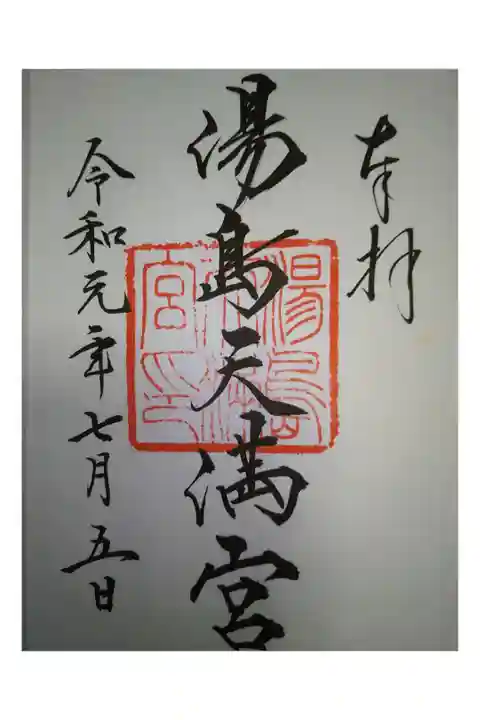 奉拝
湯島天満宮
令和元年七月五日
湯島
天満
宮印